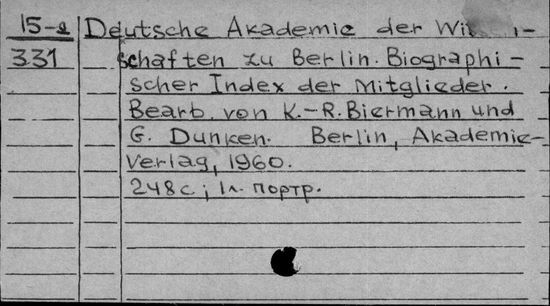 15-2 Deutsche Akademie der
331 schaften zu Berlin. Biographi-
scher Index der Mitglieder.
Bearb. von K.-R. Biermann und
G. Dunken. Berlin, Akademie-
Verlag, 1960.
248с; 1л. портр.